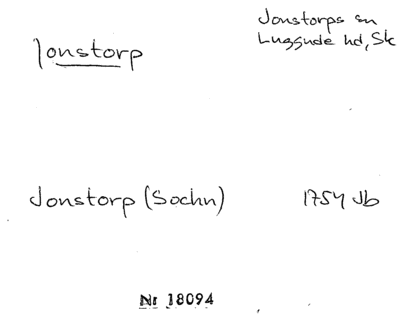 Jonstorp
Jonstorps sn
Luggude hd, Sk
Jonstorp (Sochn)
1754 Jb
Nr 18094